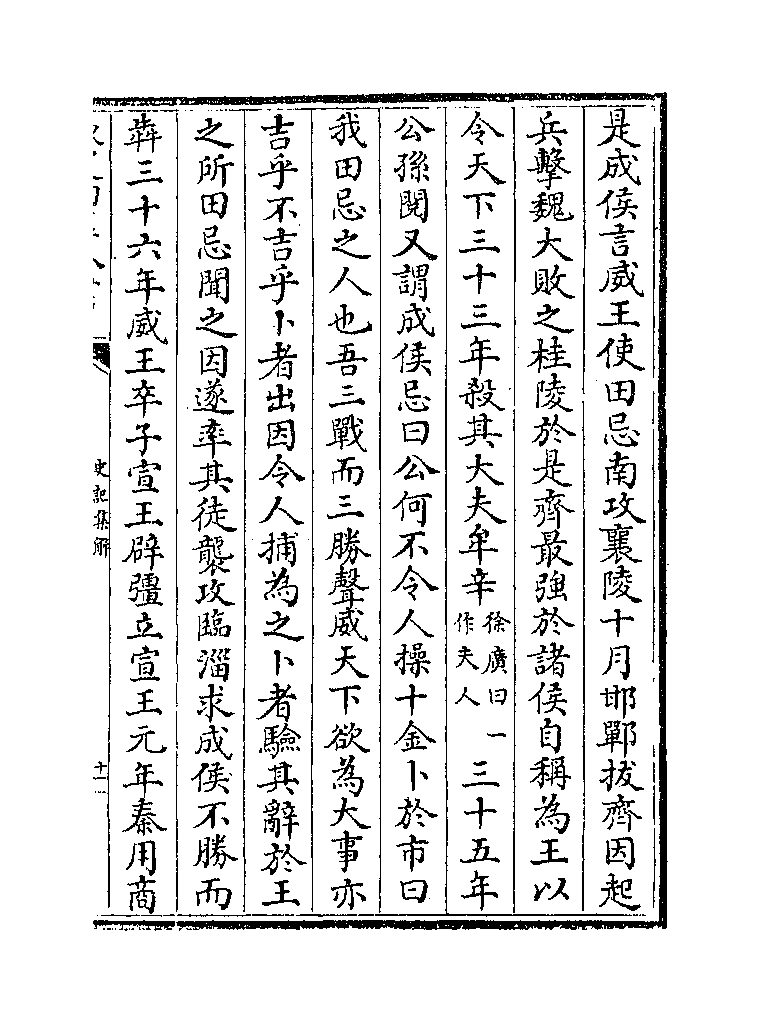 是成侯言威王使田忌南攻襄陵十月邯鄲拔齊因起
兵擊魏大敗之桂陵於是齊最強於諸侯自稱為王以
令天下三十三年殺其大夫牟辛徐廣曰一作夫人三十五年
公孫閱又謂成侯忌曰公何不令人操十金卜於市曰
我田忌之人也吾三戰而三勝聲威天下欲為大事亦
吉乎不吉乎卜者出因令人捕為之卜者驗其辭於王
之所田忌聞之因遂率其徒襲攻臨淄求成侯不勝而
犇三十六年威王卒子宣王辟彊立宣王元年秦用商
史記集解
十一